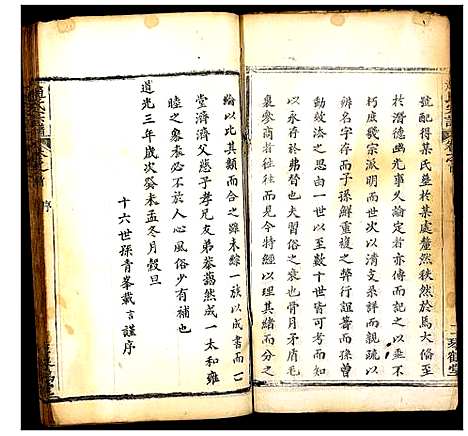 號配得某氏塋於某處釐然秩然於焉大倫至
於潛德幽光事久論定者亦傳而記之以垂不
朽庶幾宗派明而世次以清支系詳而親疏以
辨名字存而子孫鮮重複之弊行誼壽而孫曾
動效法之一世以至數十世皆可
以永存於弗替也夫習俗之衰也骨月矛盾毛
裏參商者何可勝道惟先生經以理其緒而分
綸以比其類而合之雖未綜一族以成書而一
堂濟濟父慈子孝兄友弟恭藹然成一太和雍
睦之象未必不於人心風俗少有補也
道光三年歲次癸未孟冬月穀旦
十六世孫青峯載言謹序
氏宗譜
卷之首
序